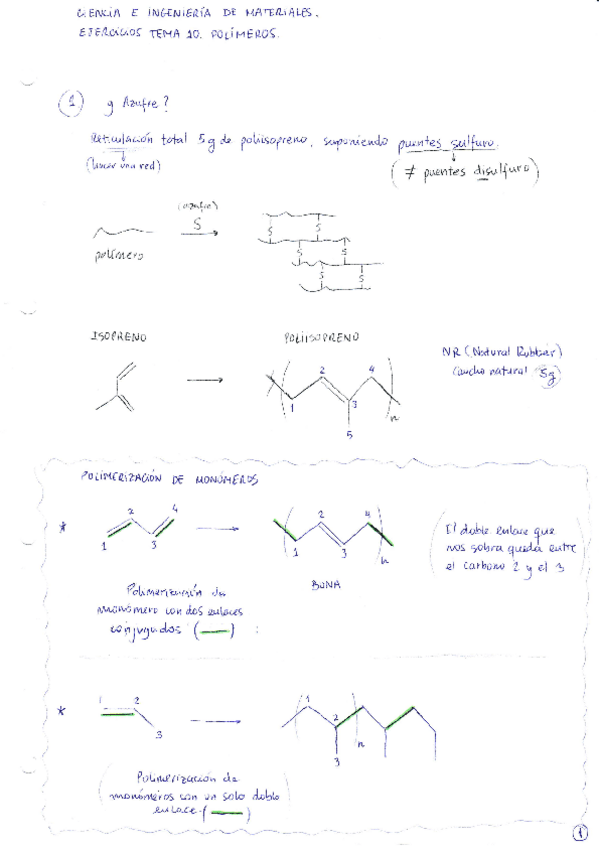 CIENCIA E INGENIERÍA DE MATERIALES.
EJERCICIOS TEMA 10. POLÍMEROS.
1 g Azufre?
Reticulación total 5g de poliisopreno, suponiendo puentes sulfuro.
(hacer una red)
(≠ puentes disulfuro)
(azufre)
S
polímero
S S
S S
S S
ISOPRENO
POLIISOPRENO
NR (Natural Rubber)
Caucho natural 5g
1 2 3 4 5 n
POLIMERIZACIÓN DE MONÓMEROS
* 1 2 3 4
1 2 3 4 n
BUNA
(El doble enlace que
nos sobra queda entre
el carbono 2 y el 3)
Polimerización de
monómero con dos enlaces
conjugados ( )
* 1 2 3
1 2 3 n
(Polimerización de
monómeros con un solo doble
enlace. ( )
1